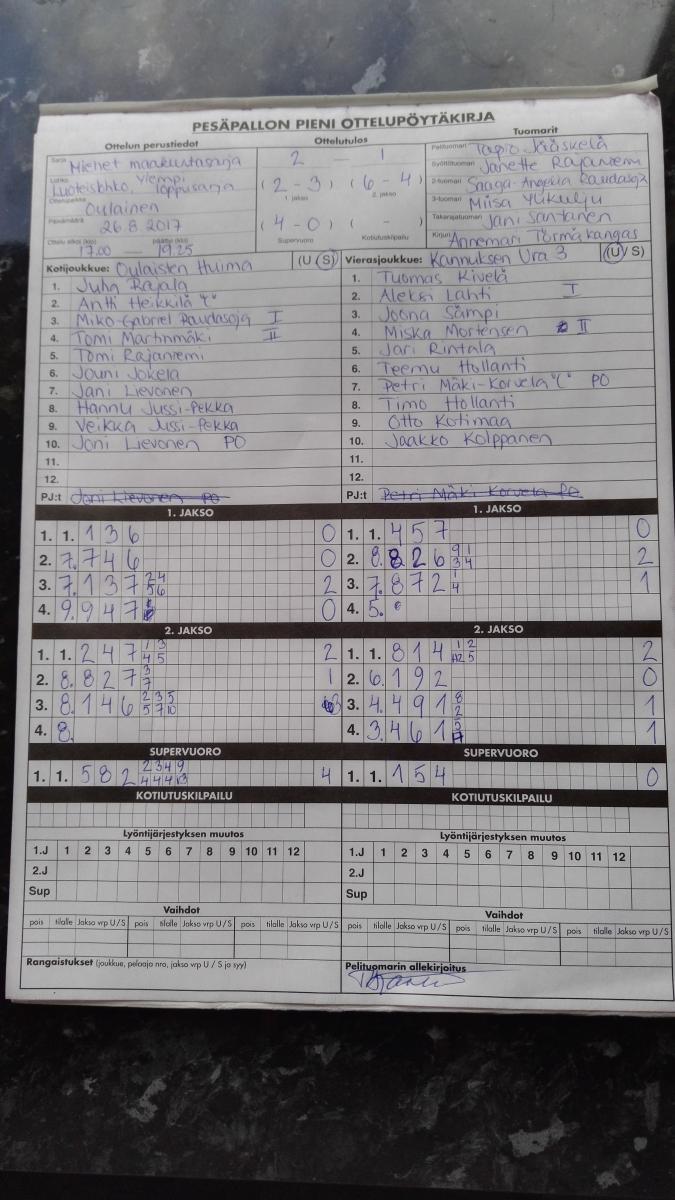 PESÄPALLON PIENI OTTELUPÖYTÄKIRJA
Ottelun perustiedot
Sarja Miehet maakuntasarja
Lohko Luoteislohko, Ylempi loppusarja
Ottelupaikka Oulainen
Päivämäärä 26.8.2017
Ottelu alkoi (klo) 17.00 — päättyi (klo) 19.25
Ottelutulos
2 — 1
(2 - 3) (6 - 4)
1. jakso 2. jakso
(4 - 0) ( - )
Supervuoro Kotiutuskilpailu
Tuomarit
Pelituomari Tapio Jääskelä
Syöttötuomari Janette Rajaniemi
2-tuomari Saaga-Angelia Raudasoja
3-tuomari Miisa Ylikulju
Takarajatuomari Jani Santanen
Kirjuri Annemari Törmäkangas
Kotijoukkue: Oulaisten Huima (U S)
1. Juha Rajala
2. Antti Heikkilä "C"
3. Miko-Gabriel Raudasoja I
4. Tomi Martinmäki II
5. Tomi Rajaniemi
6. Jouni Jokela
7. Jani Lievonen
8. Hannu Jussi-Pekka
9. Veikka Jussi-Pekka
10. Joni Lievonen PO
11.
12.
PJ:t Joni Lievonen PO
Vierasjoukkue: Kannuksen Ura 3 (U S)
1. Tuomas Kivelä
2. Aleksi Lahti I
3. Joona Sämpi
4. Miska Mortensen II
5. Jari Rintala
6. Teemu Hollanti
7. Petri Mäki-Korvela "C" PO
8. Timo Hollanti
9. Otto Kotimaa
10. Jaakko Kolppanen
11.
12.
PJ:t Petri Mäki Korvela PO
1. JAKSO
1. 1. 1 3 6 0
2. 7. 7 4 6 0
3. 7. 1 3 7 2 4 5 6 2
4. 9. 9 4 7 0
1. JAKSO
1. 1. 4 5 7 0
2. 8. 8 2 6 9 1 3 4 2
3. 7. 8 7 2 1 4 1
4. 5.
2. JAKSO
1. 1. 2 4 7 1 3 4 5 2
2. 8. 8 2 7 3 7 1
3. 8. 1 4 6 2 3 5 5 7 10 3
4. 8.
2. JAKSO
1. 1. 8 1 4 1 2 2 5 2
2. 6. 1 9 2 0
3. 4. 4 9 1 8 2 1
4. 3. 4 6 1 5 1
SUPERVUORO
1. 1. 5 8 2 2 3 4 9 4 4 4 3 4
SUPERVUORO
1. 1. 1 5 4 0
KOTIUTUSKILPAILU
KOTIUTUSKILPAILU
Lyöntijärjestyksen muutos
1.J 1 2 3 4 5 6 7 8 9 10 11 12
2.J
Sup
Lyöntijärjestyksen muutos
1.J 1 2 3 4 5 6 7 8 9 10 11 12
2.J
Sup
Vaihdot
pois tilalle Jakso vrp U/S pois tilalle Jakso vrp U/S pois tilalle Jakso vrp U/S
Vaihdot
pois tilalle Jakso vrp U/S pois tilalle Jakso vrp U/S pois tilalle Jakso vrp U/S
Rangaistukset (joukkue, pelaaja nro, jakso vrp U / S ja syy)
Pelituomarin allekirjoitus